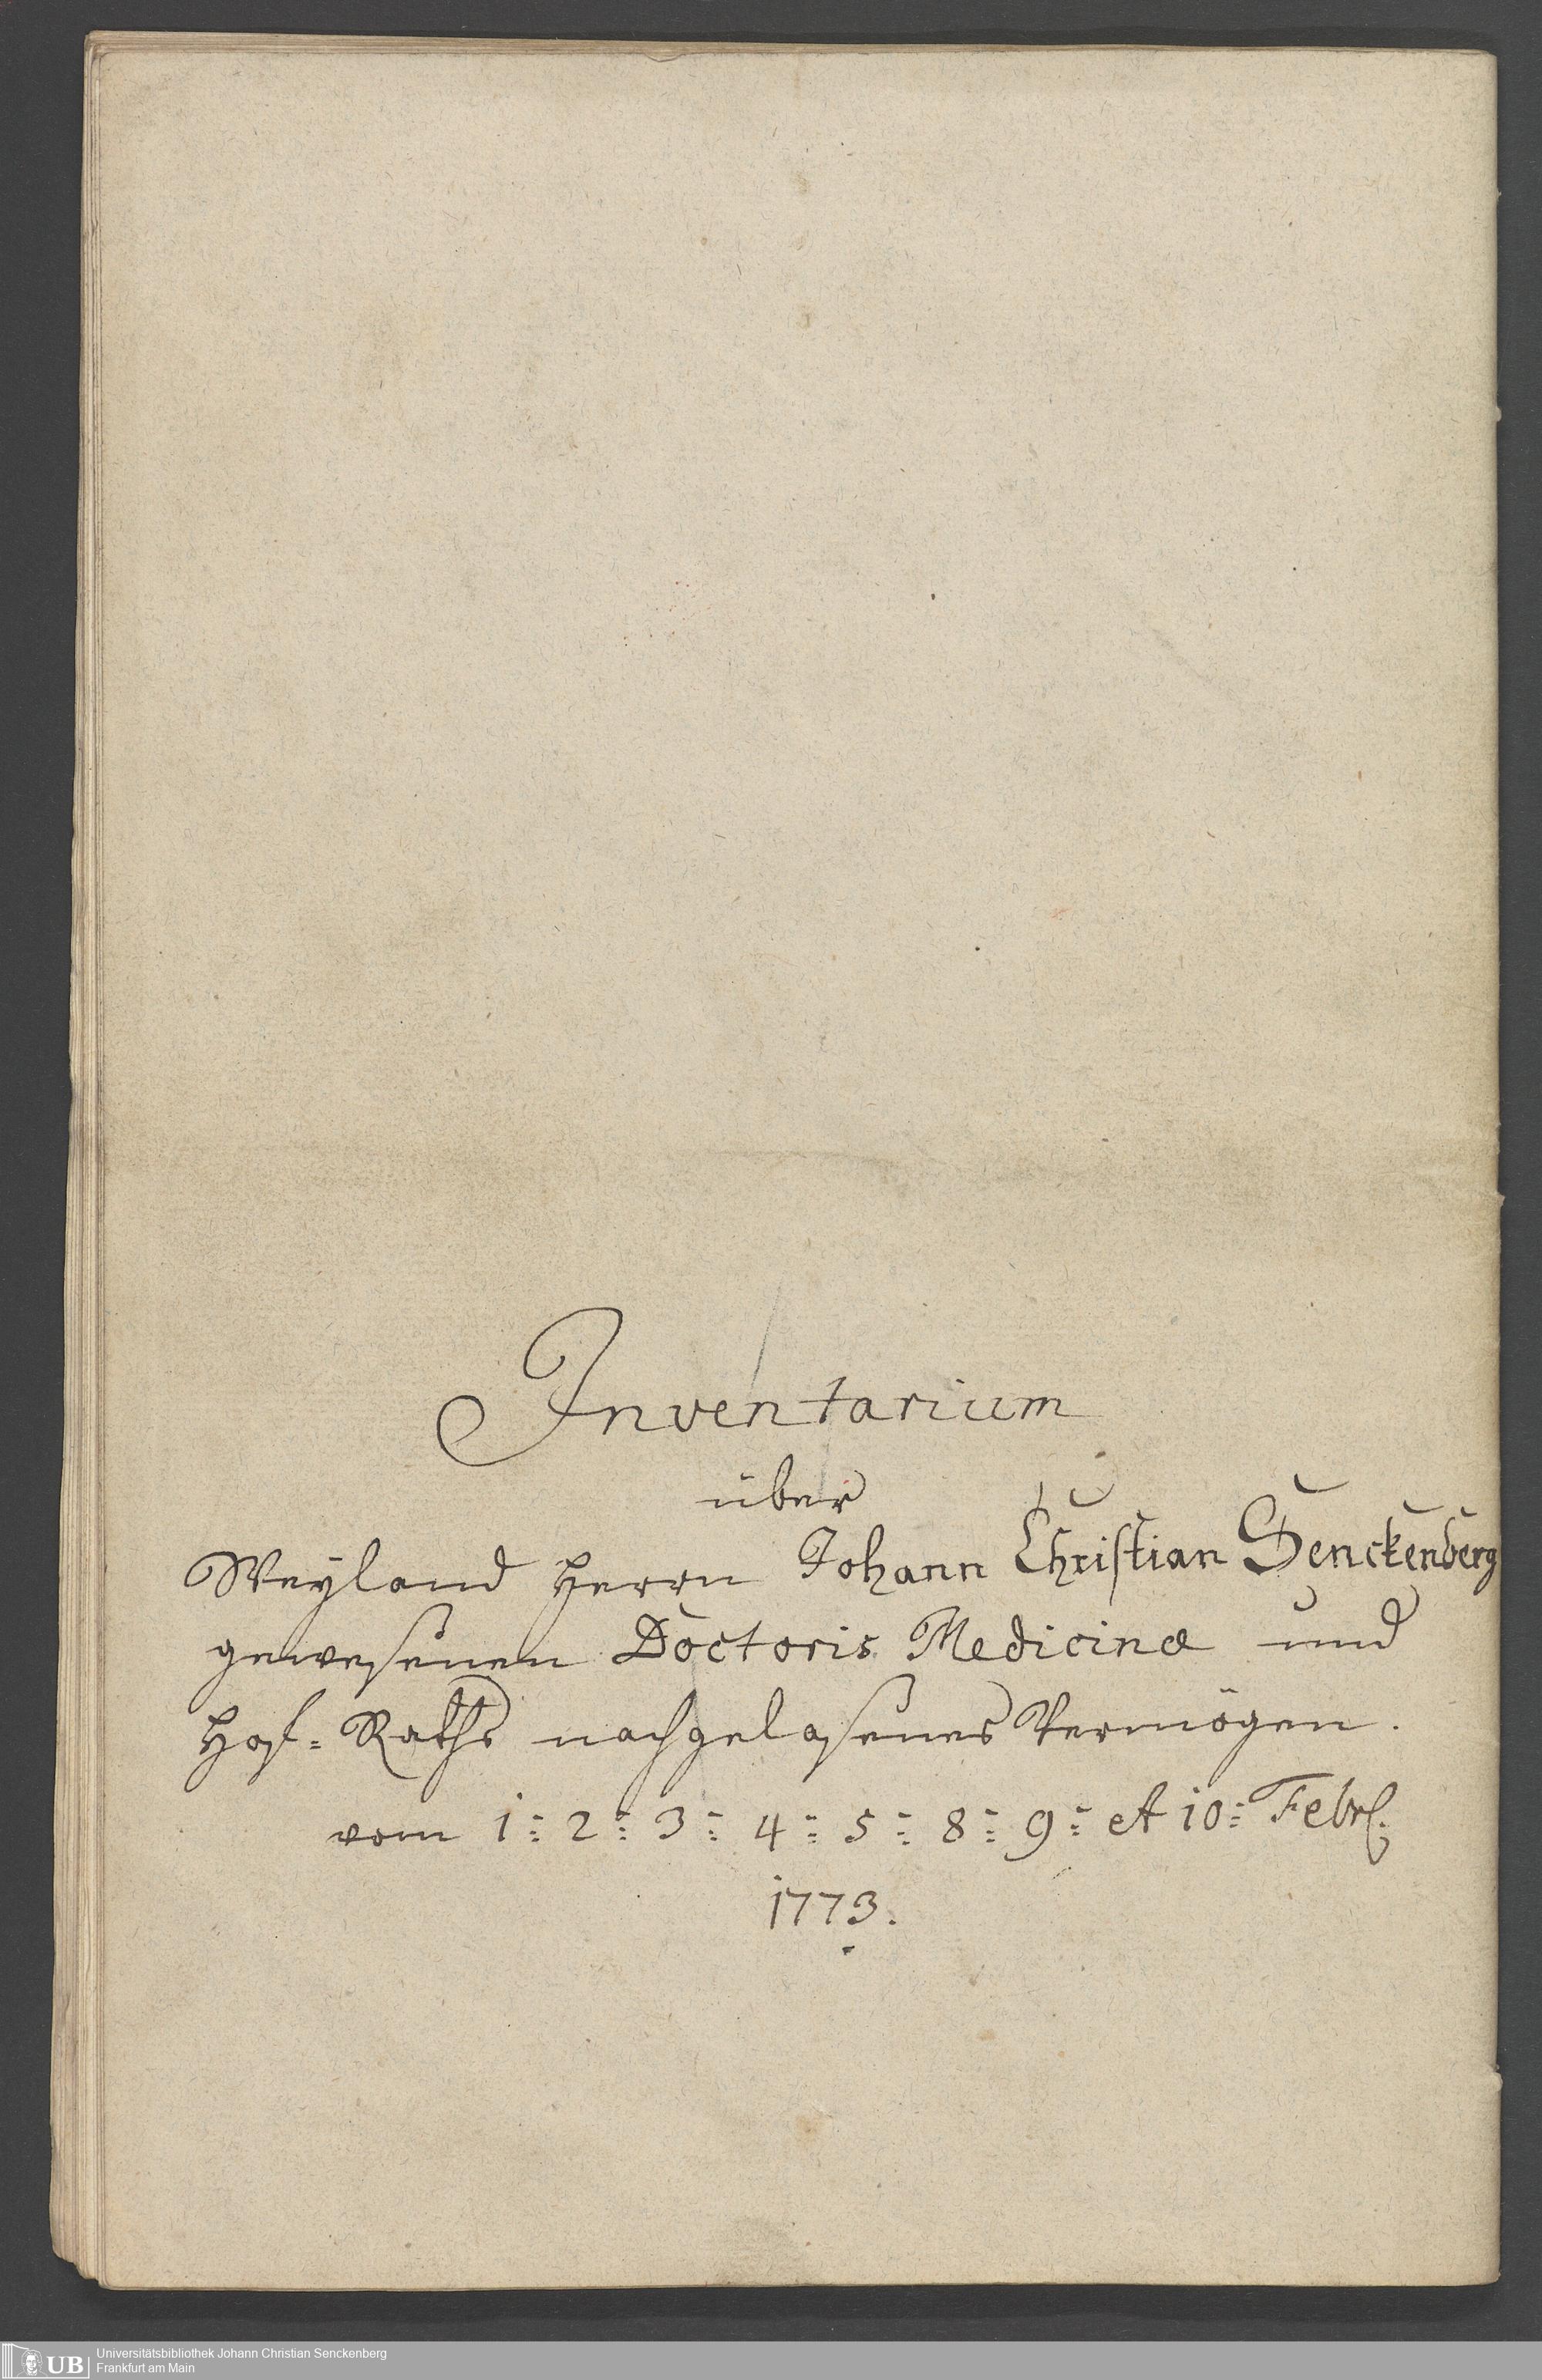 Inventarium
über
Weyland Herrn Johann Christian Senckenberg
gewesenen Doctoris Medicinæ und
Hof-Raths nachgelasenes Vermögen.
vom 1: 2: 3: 4: 5: 8: 9: et 10: Febr.
1773.
UB Universitätsbibliothek Johann Christian Senckenberg
Frankfurt am Main